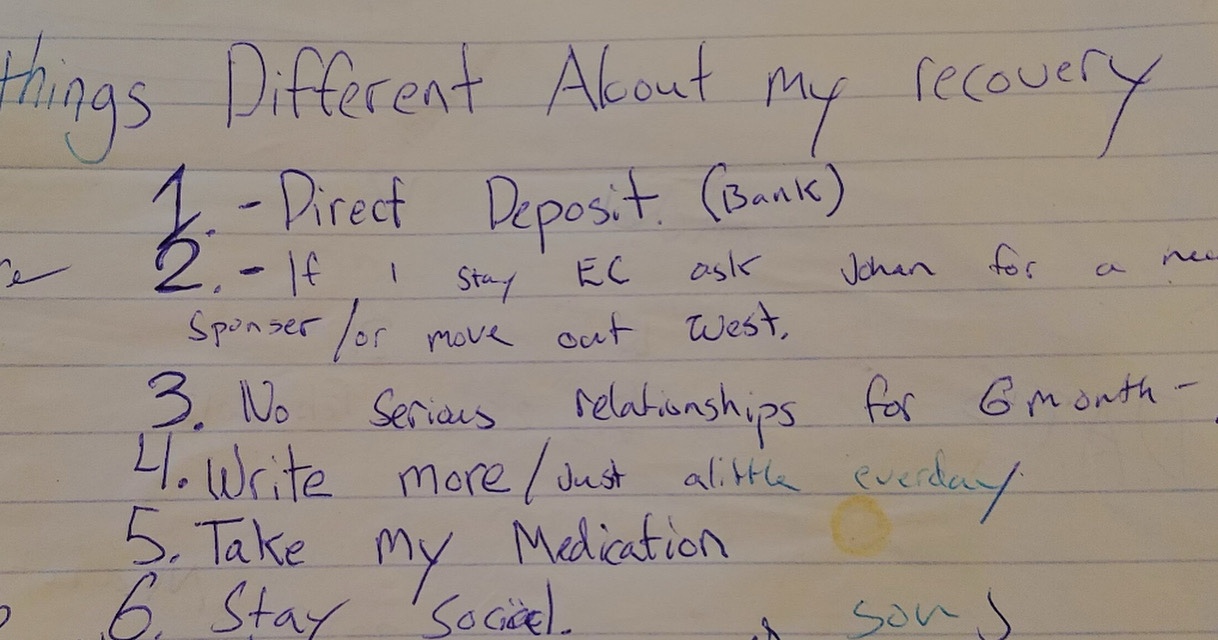 things Different About my recovery
1. - Direct Deposit. (Bank)
2. - If I stay EC ask Johan for a
Sponser /or move out west.
3. No Serious relationships for 6 month -
4. Write more / Just alittle everday
5. Take my Medication
6. Stay social.